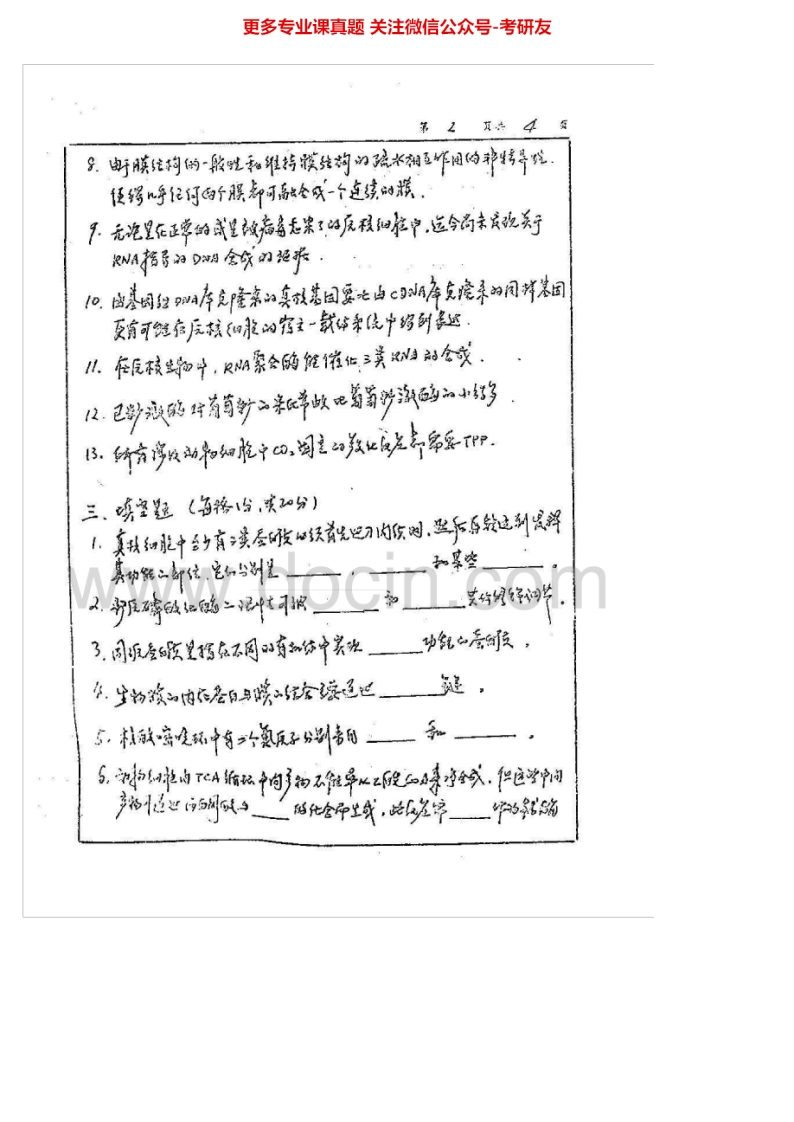 更多专业课真题 关注微信公众号-考研友
第 2 页共 4 页
8. 由于膜结构的一般性和维持膜结构的疏水相互作用的非特异性.
使得几乎任何两个膜都可融合成一个连续的膜.
9. 无论是在正常的或是被病毒感染了的原核细胞中,迄今尚未发现关于
RNA指导的DNA合成的证据.
10. 由基因组DNA库克隆来的真核基因要比由cDNA库克隆来的同样基因
更有可能在原核细胞的宿主-载体系统中得到表达.
11. 在原核生物中, RNA聚合酶能催化三类RNA的合成.
12. 己糖激酶对葡萄糖的米氏常数比葡萄糖激酶的小得多.
13. 所有涉及动物细胞中CO₂固定的羧化反应都需要TPP.
三、填空题 (每格1分,共20分)
1. 真核细胞中至少有三类蛋白质 首先进入内质网,然后再转运到发挥
其功能的部位,它们分别是 和某些 。
2. 和 共价修饰调节.
3. 同源蛋白质是指在不同的有机体中实现 功能的蛋白质。
4. 生物膜的内在蛋白与膜的结合主要通过 键。
5. 核酸嘧啶环中有二个氮原子分别来自 和 。
6. 动物细胞内TCA循环中间产物不能单从乙酰CoA来净合成,但这些中间
产物可通过 与 的化合而生成,此反应需
www.docin.com